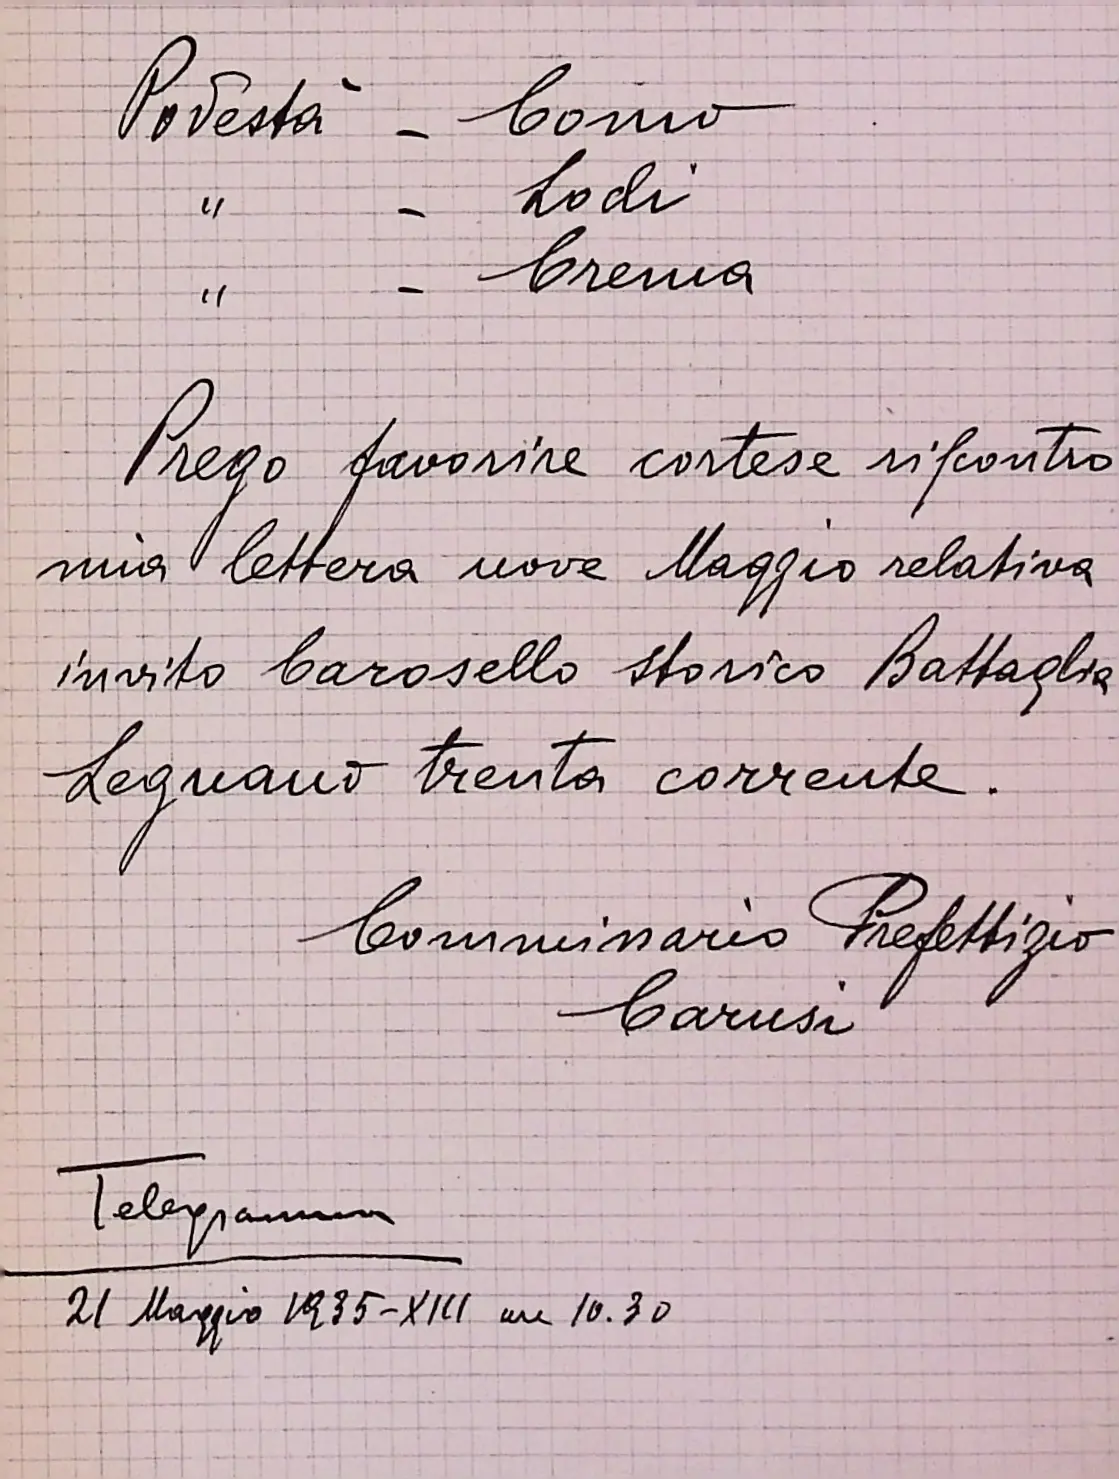 Podestà - Como
" - Lodi
" - Crema
Prego favorire cortese riscontro
mia lettera nove Maggio relativa
invito Carosello storico Battaglia
Legnano trenta corrente.
Commissario Prefettizio
Carusi
Telegramma
21 Maggio 1935-XIII ore 10.30